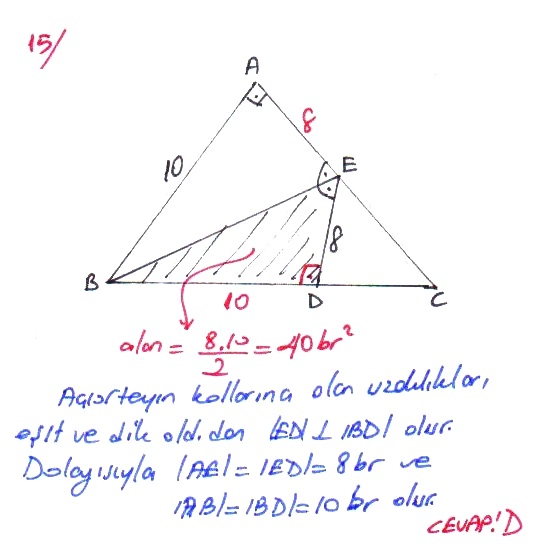 15/
A
8
10
E
8
B
10
D
C
alan = 8.10/2 = 40 br²
Açıortayın kollarına olan uzaklıkları
eşit ve dik old. dan |ED| ⊥ |BD| olur.
Dolayısıyla |AE| = |ED| = 8 br ve
|AB| = |BD| = 10 br olur.
CEVAP: D